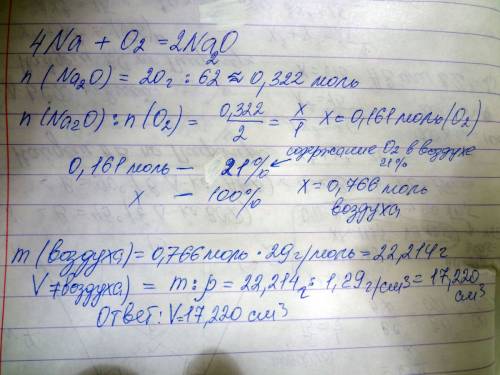 4Na + O₂ = 2Na₂O
n(Na₂O) = 20г : 62 ≈ 0,322 моль
n(Na₂O) : n(O₂) = 0,322/2 = x/1 x = 0,161 моль (O₂)
содержание O₂ в воздухе 21%
0,161 моль — 21%
x — 100% x = 0,766 моль воздуха
m (воздуха) = 0,766 моль · 29 г/моль = 22,214 г
V (воздуха) = m : ρ = 22,214 г : 1,29 г/см³ = 17,220 см³
Ответ: V = 17,220 см³